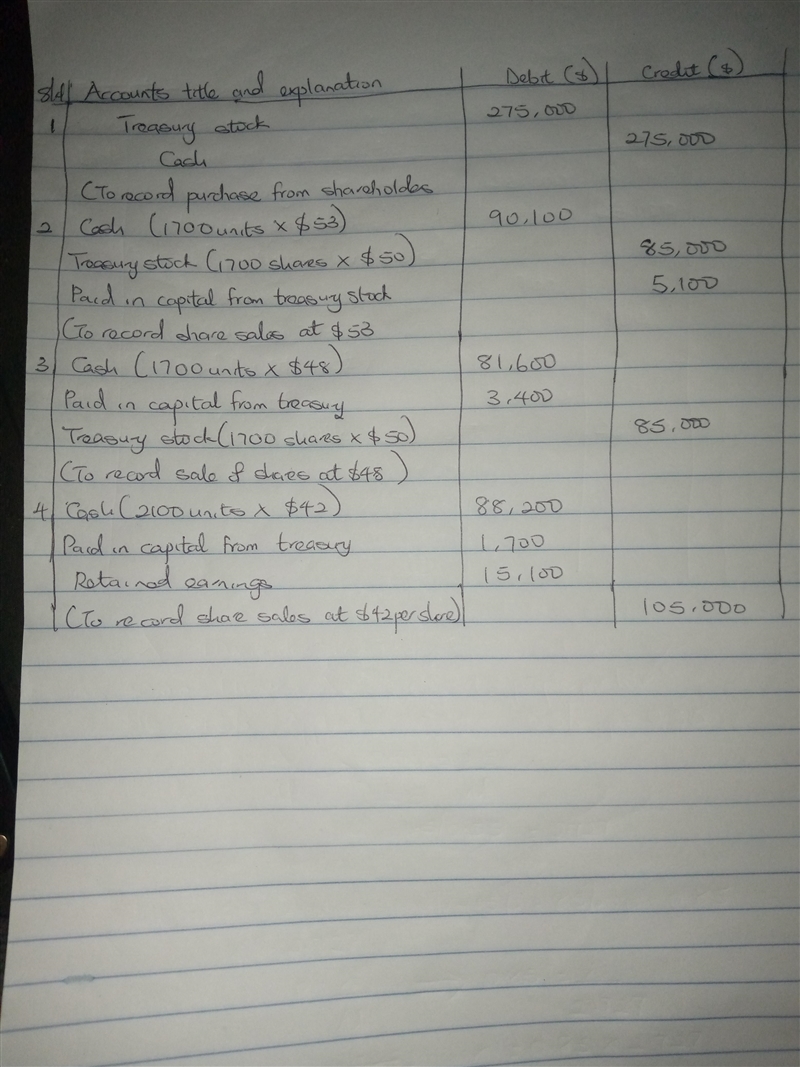 S/N Accounts title and explanation Debit ($) Credit ($)
1 Treasury stock 275,000
Cash 275,000
(To record purchase from shareholdes
2 Cash (1700 units x $53) 90,100
Treasury stock (1700 shares x $50) 85,000
Paid in capital from treasury stock 5,100
(To record share sales at $53
3 Cash (1700 units x $48) 81,600
Paid in capital from treasury 3,400
Treasury stock (1700 shares x $50) 85,000
(To record sale of shares at $48)
4 Cash (2100 units x $42) 88,200
Paid in capital from treasury 1,700
Retained earnings 15,100
(To record share sales at $42 per share) 105,000